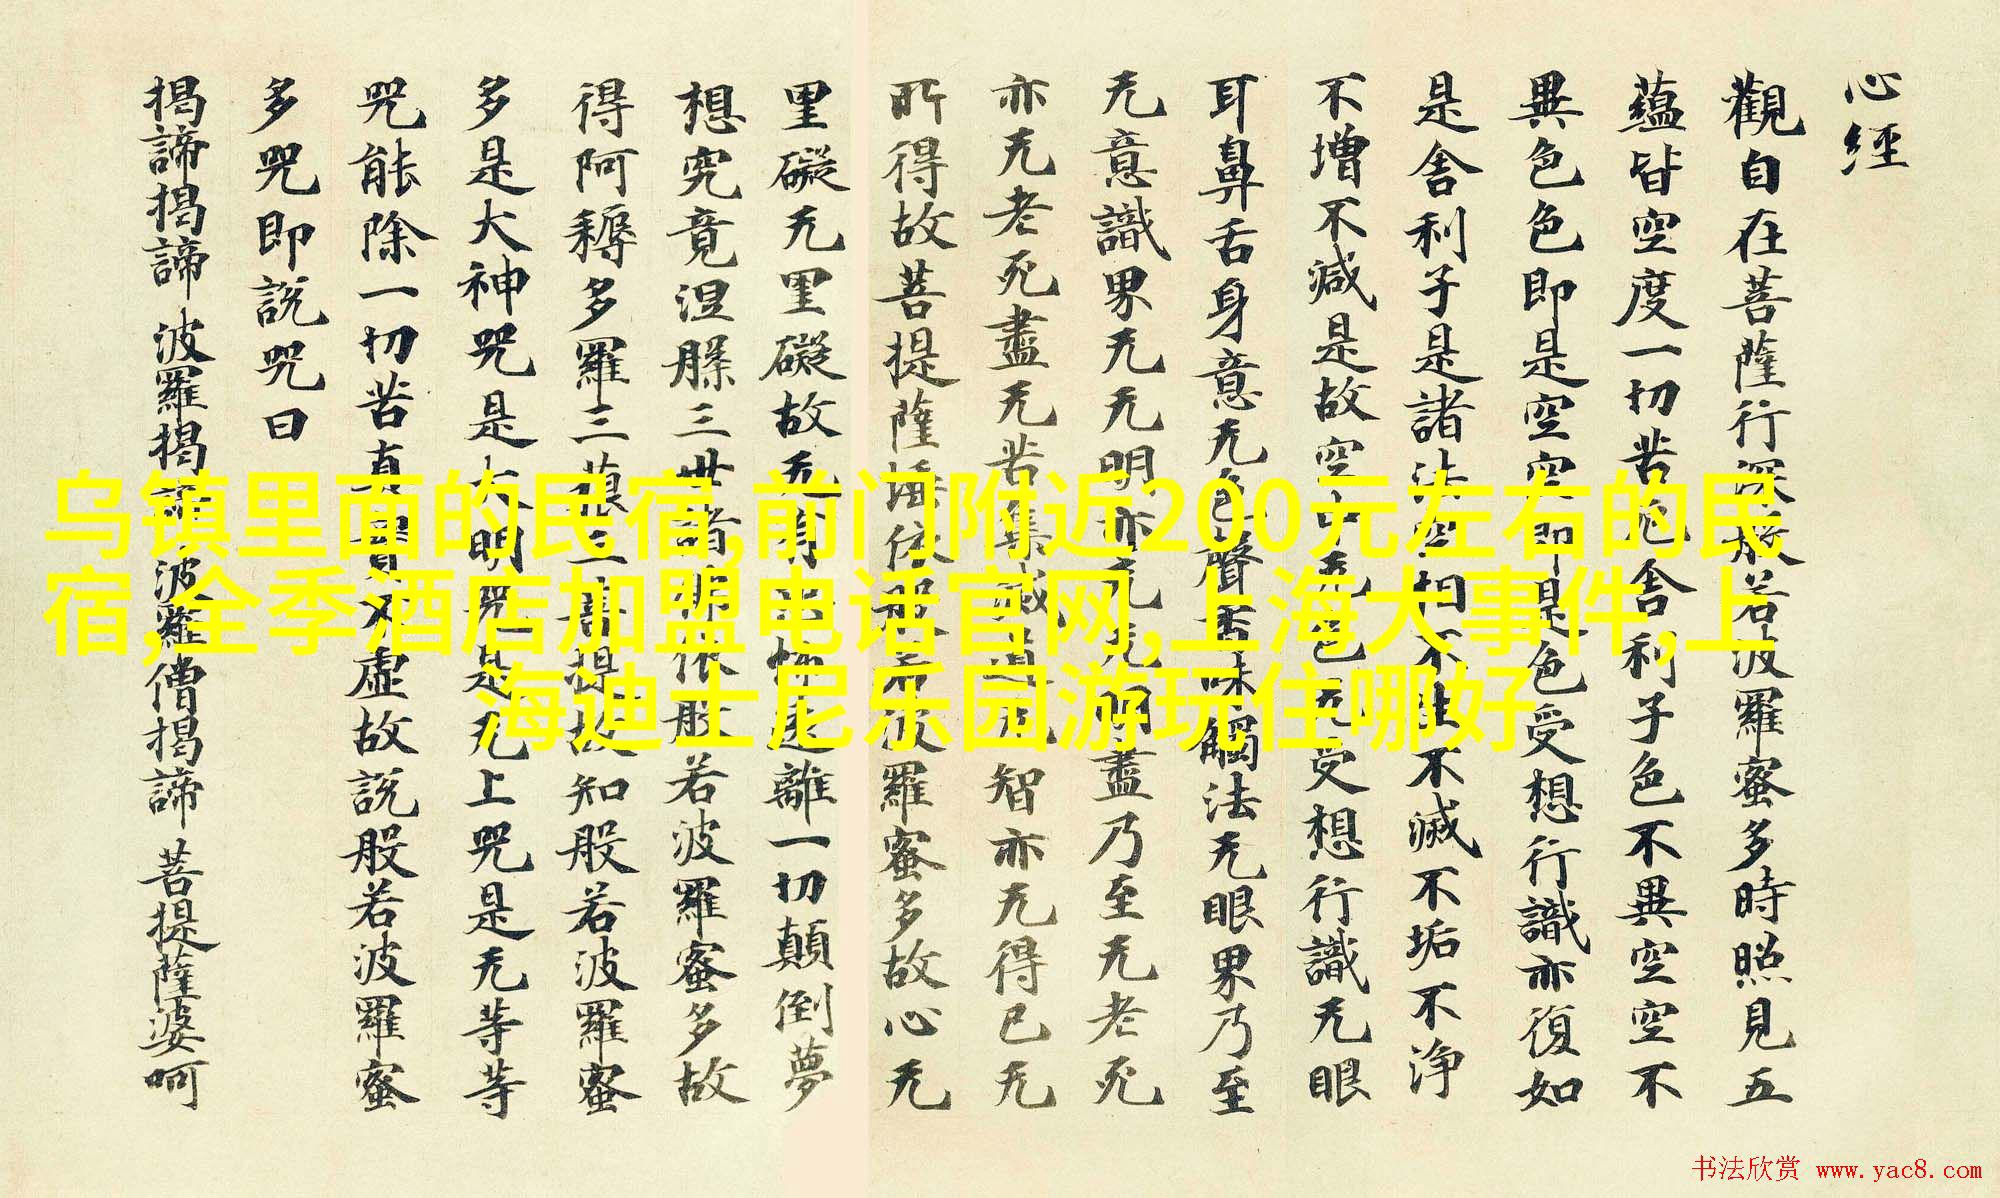 心經
觀自在菩薩行深般若波羅蜜多時照見五
蘊皆空度一切苦厄舍利子色不異空空不
異色色即是空空即是色受想行識亦復如
是舍利子是諸法空相不生不滅不垢不淨
不增不減是故空中无色无受想行識无眼
耳鼻舌身意无色聲香味觸法无眼界乃至
无意識界无无明亦无无明盡乃至无老死
亦无老死盡无苦集滅道无智亦无得已无
所得故菩提薩埵依般若波羅蜜多故心无
罣礙无罣礙故无有恐怖遠離一切顛倒夢
想究竟涅槃三世諸佛依般若波羅蜜多故
得阿耨多羅三藐三菩提故知般若波羅蜜
多是大神咒是大明咒是无上咒是无等等
咒能除一切苦真實不虛故說般若波羅蜜
多咒即說咒曰
揭諦揭諦 波羅揭諦 波羅僧揭諦 菩提薩婆呵
乌镇里面的民宿,前门附近200元左右的民
宿,全季酒店加盟电话官网,上海大事件,上
海迪士尼乐园游玩住哪好
书法欣赏 www.yac8.com